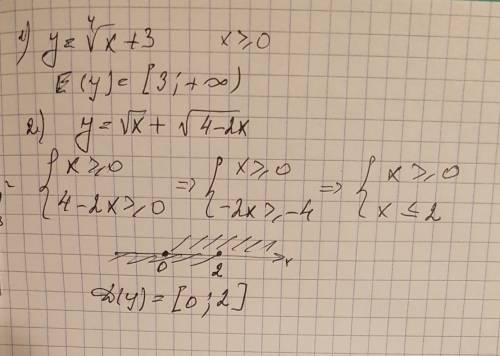 1) y = ∜x + 3    x ⩾ 0
E(y) = [3; +∞)
2) y = √x + √(4-2x)
{ x ⩾ 0 ; 4-2x ⩾ 0 => { x ⩾ 0 ; -2x ⩾ -4 => { x ⩾ 0 ; x ≤ 2
0 2 x
D(y) = [0; 2]